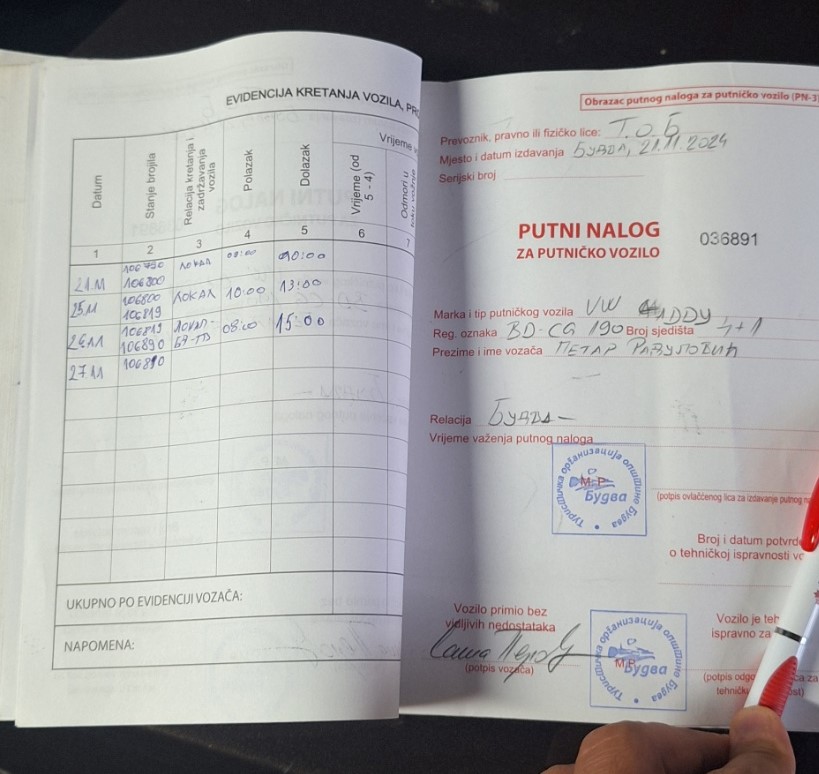 EVIDENCIJA KRETANJA VOZILA, PRO
Datum
Stanje brojila
Relacija kretanja i zadržavanja vozila
Polazak
Dolazak
Vrijeme v
Vrijeme (od 5 - 4)
Odmori u toku vožnje
1 2 3 4 5 6 7
21.11 106790 ЛОКАЛ 08:00 010:00
106800
25.11 106800 ЛОКАЛ 10:00 13:00
106819
26.11 106819 ЛОКАЛ- 08:00 15:00
106890 БД-ТВ
27.11 106890
UKUPNO PO EVIDENCIJI VOZAČA:
NAPOMENA:
Obrazac putnog naloga za putničko vozilo (PN-3)
Prevoznik, pravno ili fizičko lice: Т.О.Б
Mjesto i datum izdavanja БУДВА, 21.11.2024
Serijski broj
PUTNI NALOG
ZA PUTNIČKO VOZILO
036891
Marka i tip putničkog vozila VW CADDY
Reg. oznaka BD-CG 190 Broj sjedišta 4+1
Prezime i ime vozača ПЕТАР РАДУЛОВИЋ
Relacija БУДВА —
Vrijeme važenja putnog naloga
Туристичка организација општине Будва
M.P.
Будва
(potpis ovlašćenog lica za izdavanje putnog n
Broj i datum potvrde
o tehničkoj ispravnosti vo
Vozilo primio bez
vidljivih nedostataka
(potpis vozača)
Туристичка организација општине Будва
M.P.
Будва
Vozilo je teh
ispravno za
(potpis odgo ca za
tehničk ost)